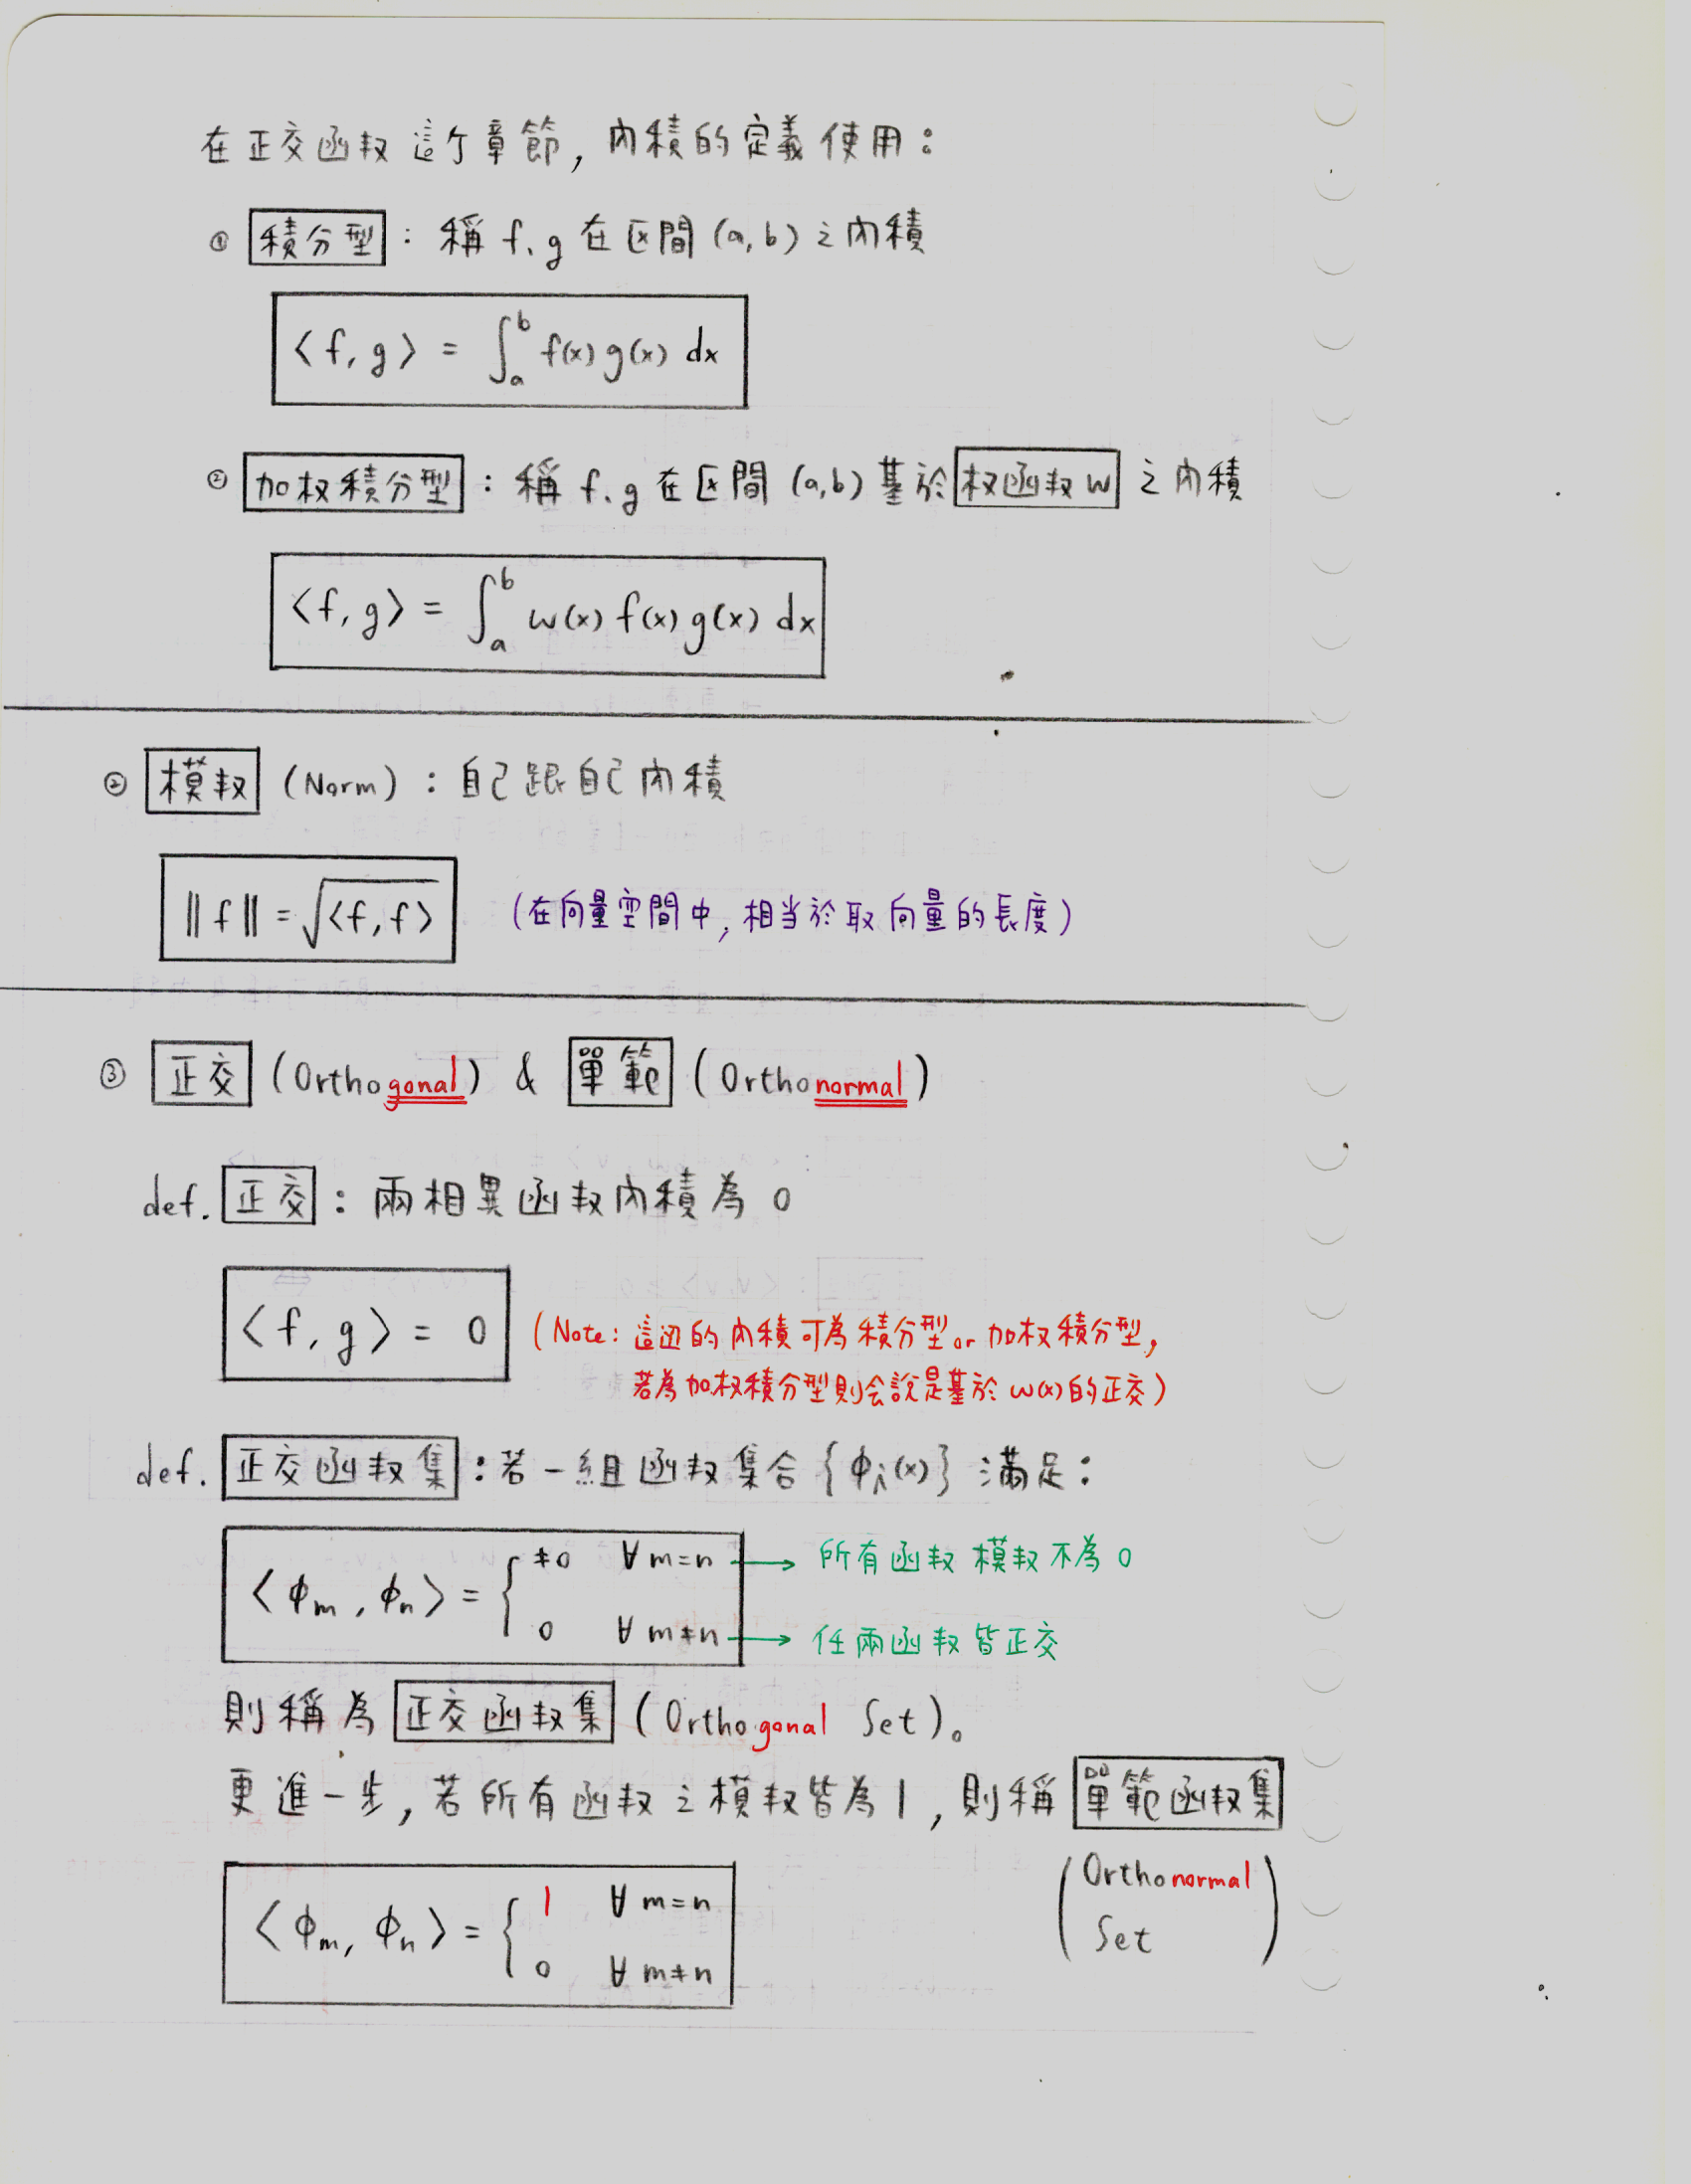 在正交函数這个章節，內積的定義使用：
① 積分型：稱 f、g 在区間 (a,b) 之內積
<f, g> = ∫_a^b f(x) g(x) dx
② 加权積分型：稱 f、g 在区間 (a,b) 基於权函数 w 之內積
<f, g> = ∫_a^b w(x) f(x) g(x) dx
② 模数 (Norm)：自己跟自己內積
‖f‖ = √<f, f> (在向量空間中, 相当於取向量的長度)
③ 正交 (Orthogonal) & 單範 (Orthonormal)
def. 正交：兩相異函数內積為 0
<f, g> = 0 (Note: 這边的內積可為積分型 or 加权積分型,
若為加权積分型則会說是基於 w(x) 的正交)
def. 正交函数集：若一組函数集合 {ϕi(x)} 滿足：
<ϕm, ϕn> = { ≠0 ∀ m=n → 所有函数模数不為 0
0 ∀ m≠n → 任兩函数皆正交
則稱為 正交函数集 (Orthogonal Set)。
更進一步, 若所有函数之模数皆為 1, 則稱 單範函数集
(Orthonormal Set)
<ϕm, ϕn> = { 1 ∀ m=n
0 ∀ m≠n